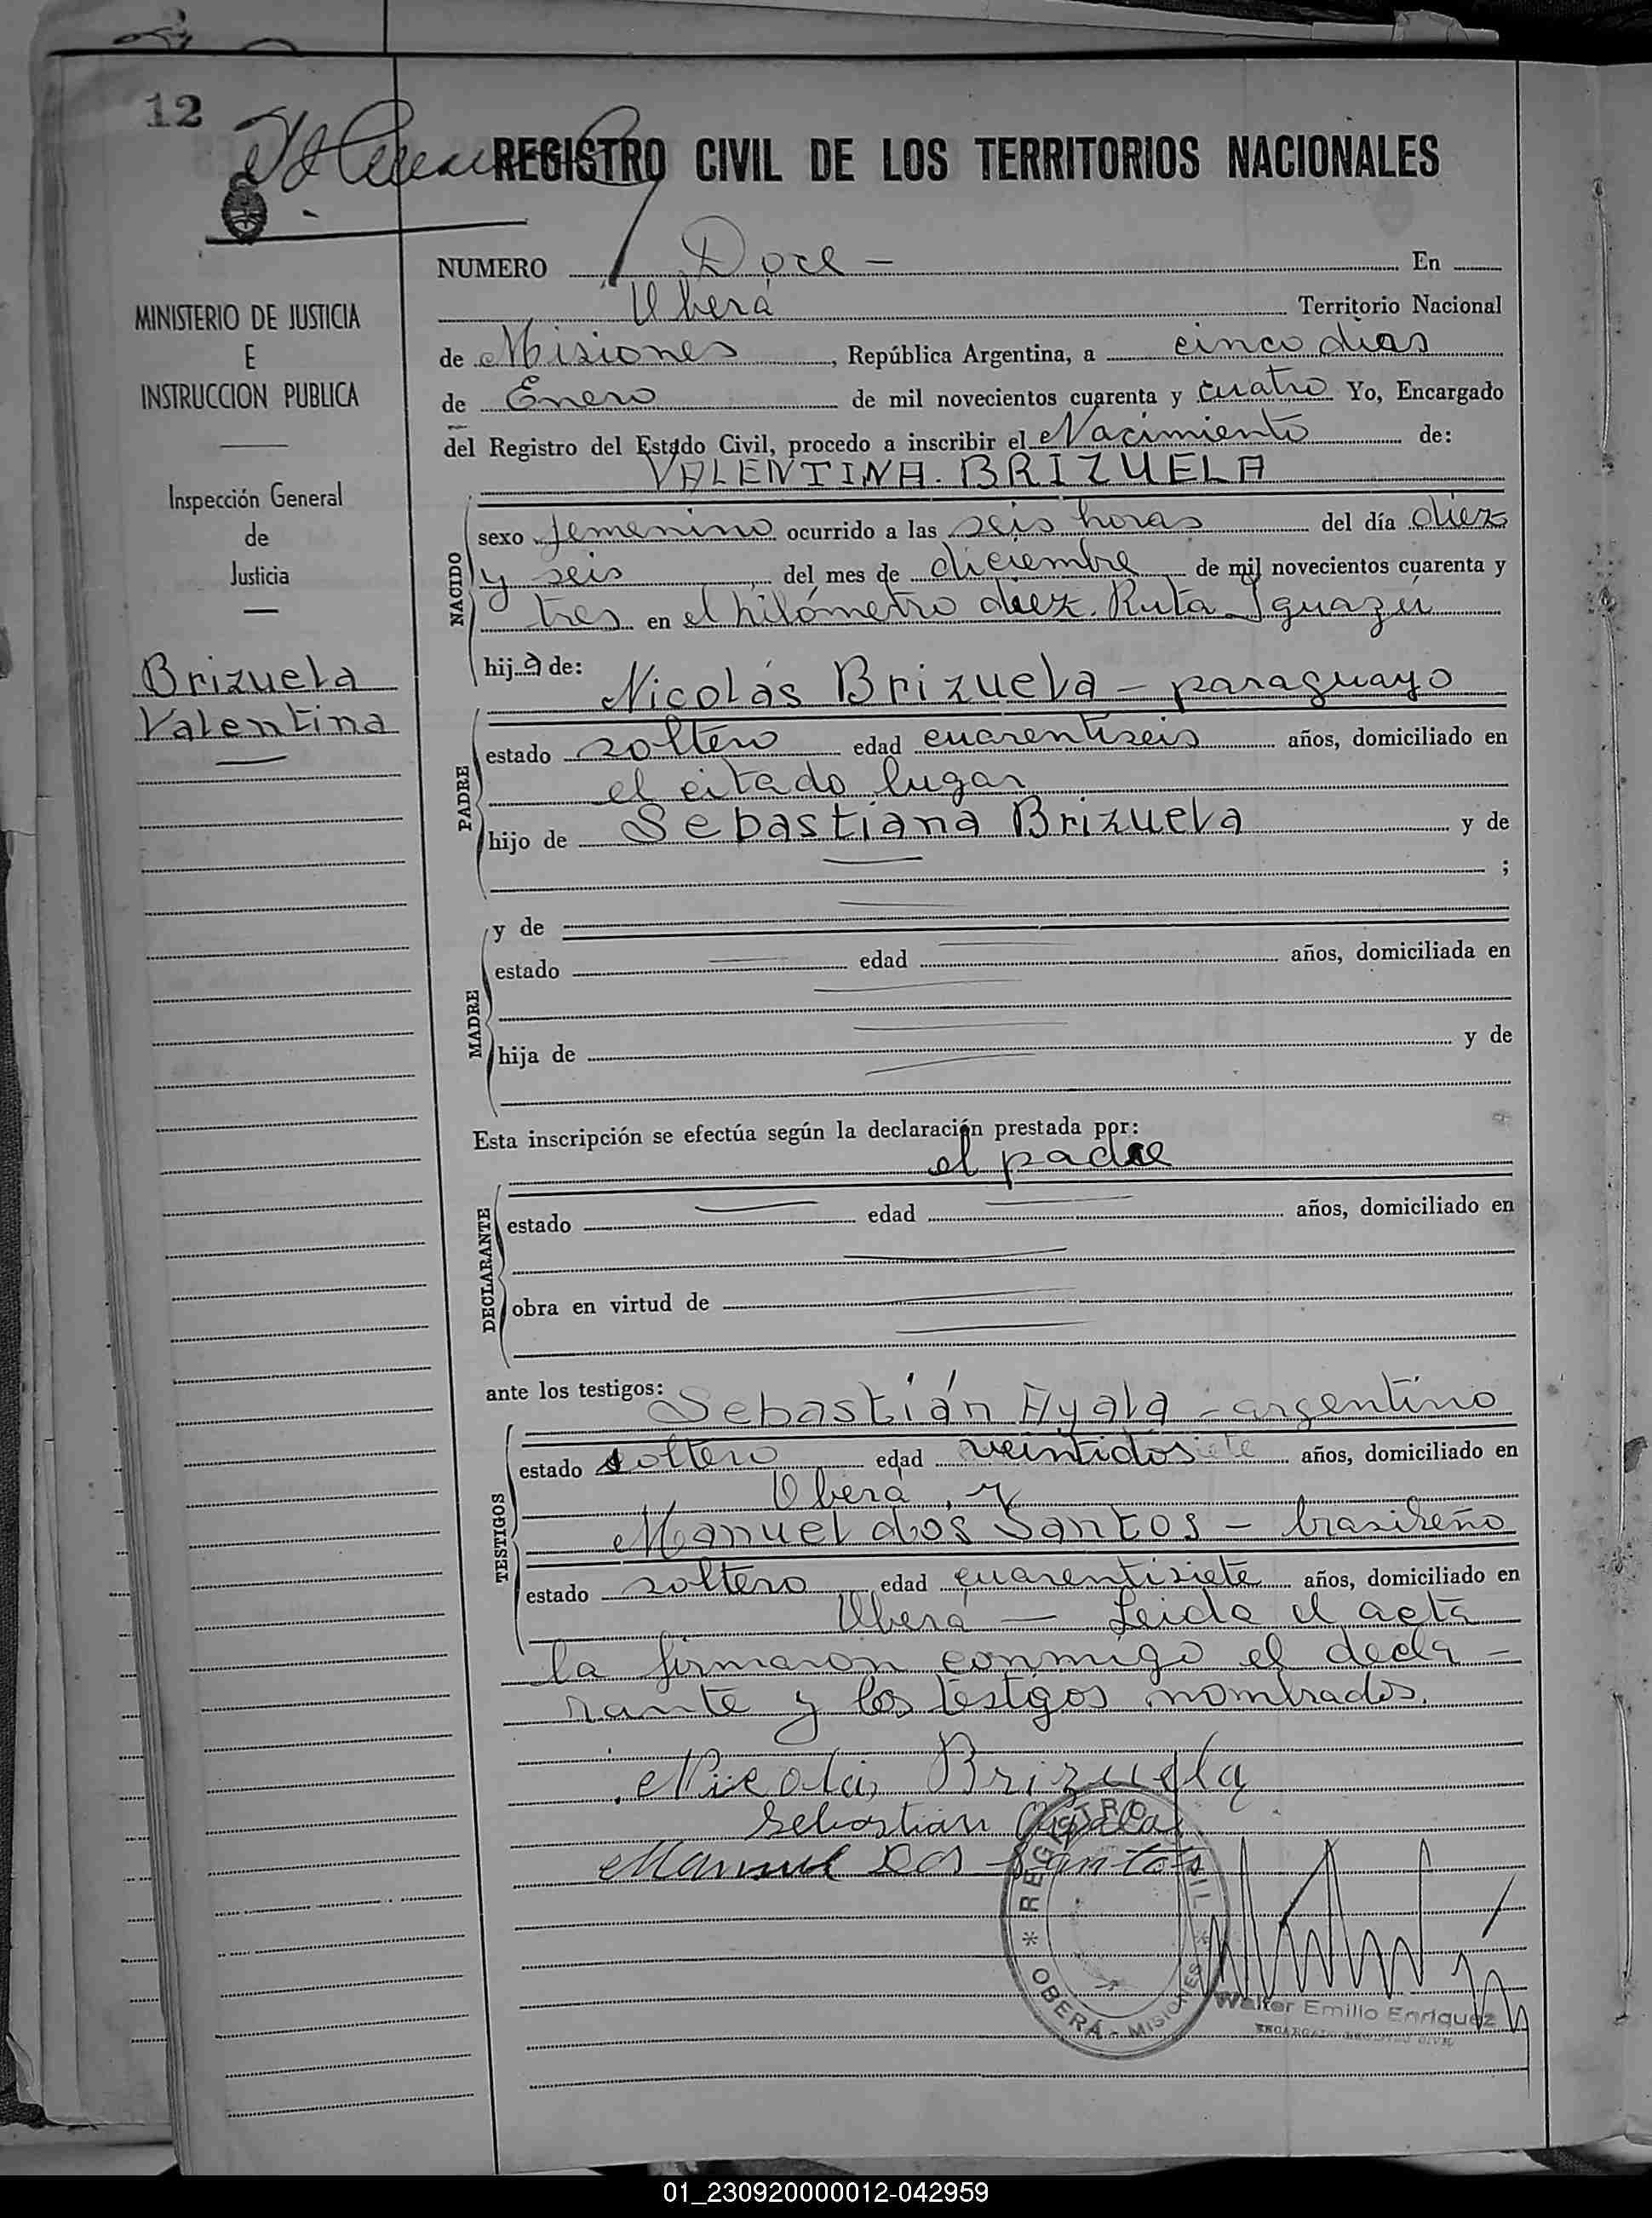 12
REGISTRO CIVIL DE LOS TERRITORIOS NACIONALES
NUMERO Doce - En
Oberá Territorio Nacional
de Misiones, República Argentina, a cinco dias
de Enero de mil novecientos cuarenta y cuatro Yo, Encargado
del Registro del Estado Civil, procedo a inscribir el Nacimiento de:
VALENTINA. BRIZUELA
MINISTERIO DE JUSTICIA
E
INSTRUCCION PUBLICA
Inspección General
de
Justicia
Brizuela
Valentina
NACIDO
sexo femenino ocurrido a las seis horas del día diez
y seis del mes de diciembre de mil novecientos cuarenta y
tres en el kilómetro diez. Ruta Iguazú
hija de:
Nicolás Brizuela - paraguayo
PADRE
estado soltero edad cuarentiseis años, domiciliado en
el citado lugar
hijo de Sebastiana Brizuela y de
;
y de
MADRE
estado edad años, domiciliada en
hija de y de
Esta inscripción se efectúa según la declaración prestada por:
el padre
DECLARANTE
estado edad años, domiciliado en
obra en virtud de
ante los testigos:
Sebastián Ayala - argentino
TESTIGOS
estado soltero edad veintidos años, domiciliado en
Oberá, y
Manuel dos Santos - brasileño
estado soltero edad cuarentisiete años, domiciliado en
Oberá — Leida el acta
la firmaron conmigo el decla-
rante y los testigos nombrados.
Nicolás Brizuela
Sebastian Ayala
Manuel Dos Santos
REGISTRO CIVIL * OBERÁ - MISIONES *
Walter Emilio Enriquez
ENCARGADO REGISTRO CIVIL
01_230920000012-042959